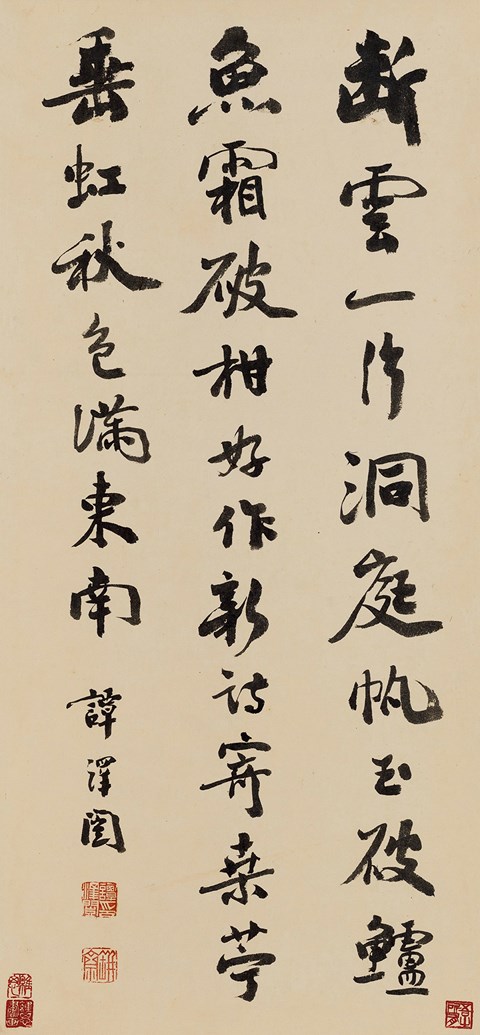 斷雲一片洞庭帆玉破鱸
魚霜破柑好作新詩寄桑苧
垂虹秋色滿東南
譚澤闓